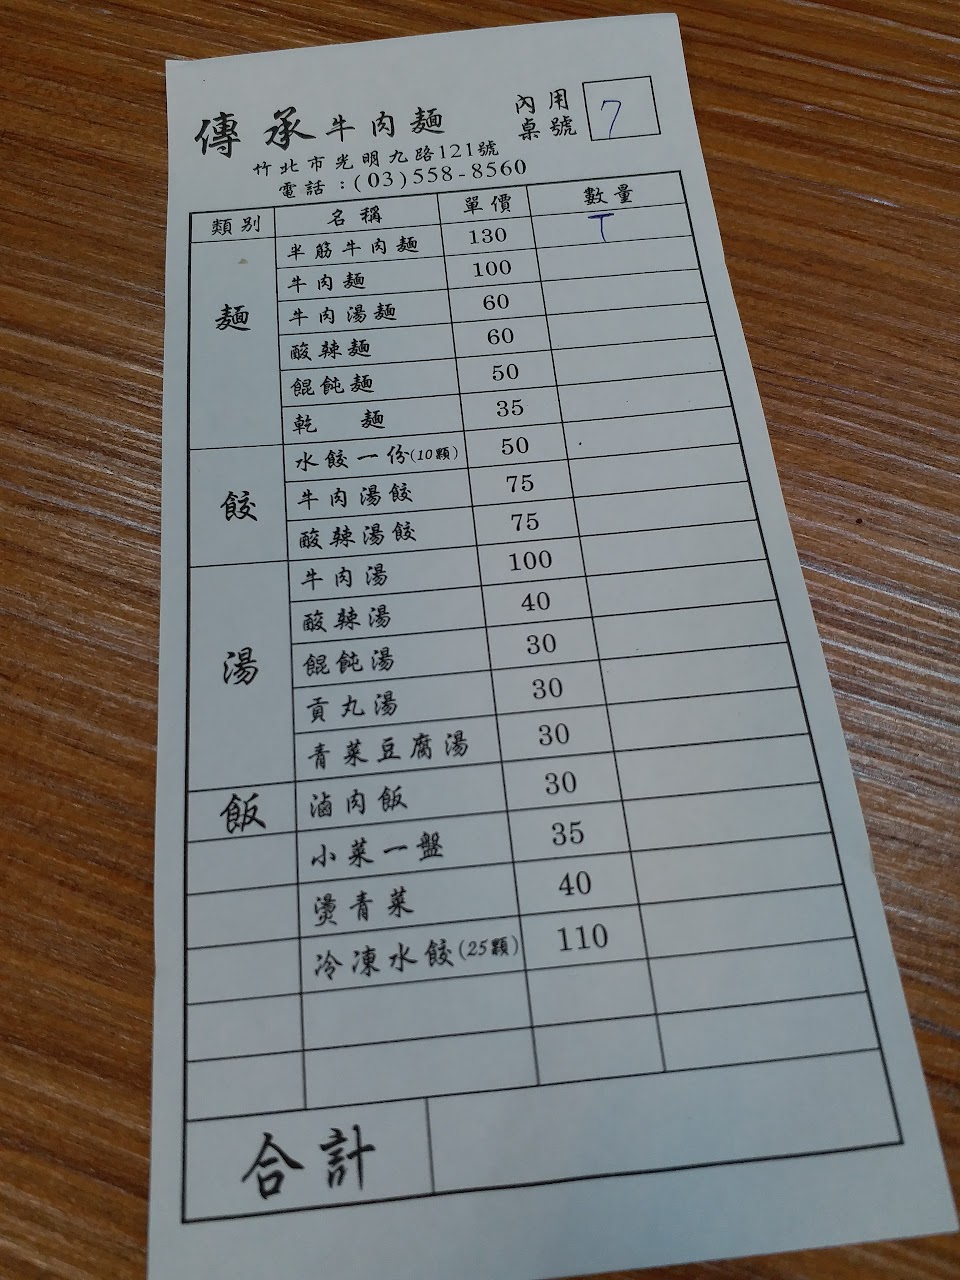 傳承牛肉麵
內用桌號 7
竹北市光明九路121號
電話：(03)558-8560
類別 名稱 單價 數量
麵 半筋牛肉麵 130 T
牛肉麵 100
牛肉湯麵 60
酸辣麵 60
餛飩麵 50
乾麵 35
餃 水餃一份(10顆) 50
牛肉湯餃 75
酸辣湯餃 75
湯 牛肉湯 100
酸辣湯 40
餛飩湯 30
貢丸湯 30
青菜豆腐湯 30
飯 滷肉飯 30
小菜一盤 35
燙青菜 40
冷凍水餃(25顆) 110
合計